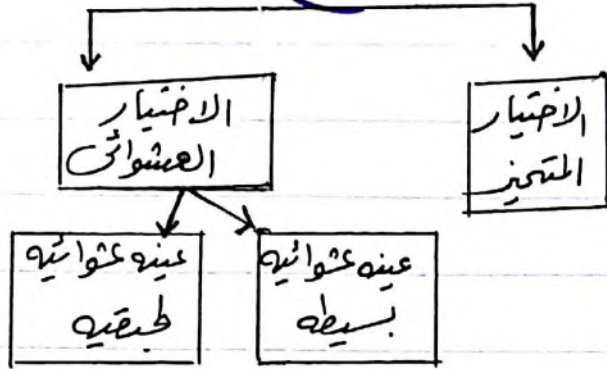 الاختيار
المتحيز
الاختيار
العشوائى
عينه عشوائيه
بسيطه
عينه عشوائيه
طبقيه